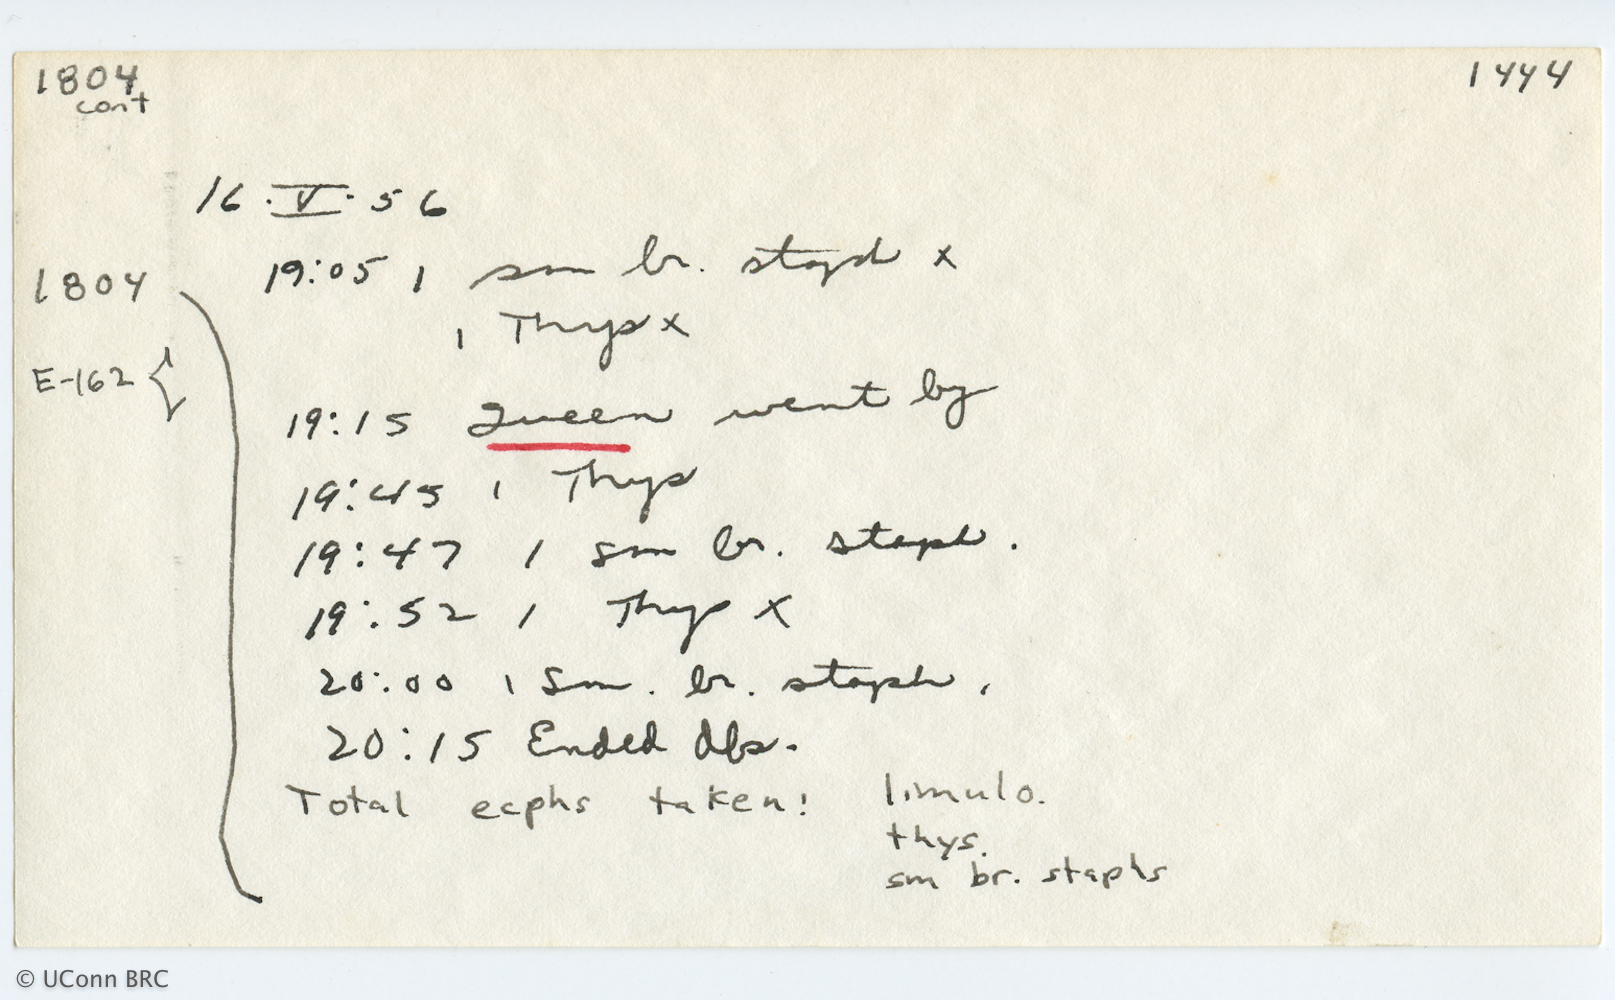 1804 1444
cont
16·V·56
1804 19:05 1 sm br. staph x
1 Thys x
E-162
19:15 Queen went by
19:45 1 Thys
19:47 1 sm br. staph.
19:52 1 Thys x
20:00 1 Sm. br. staph.
20:15 Ended obs.
Total ecphs taken: limulo.
thys.
sm br. staphs
© UConn BRC